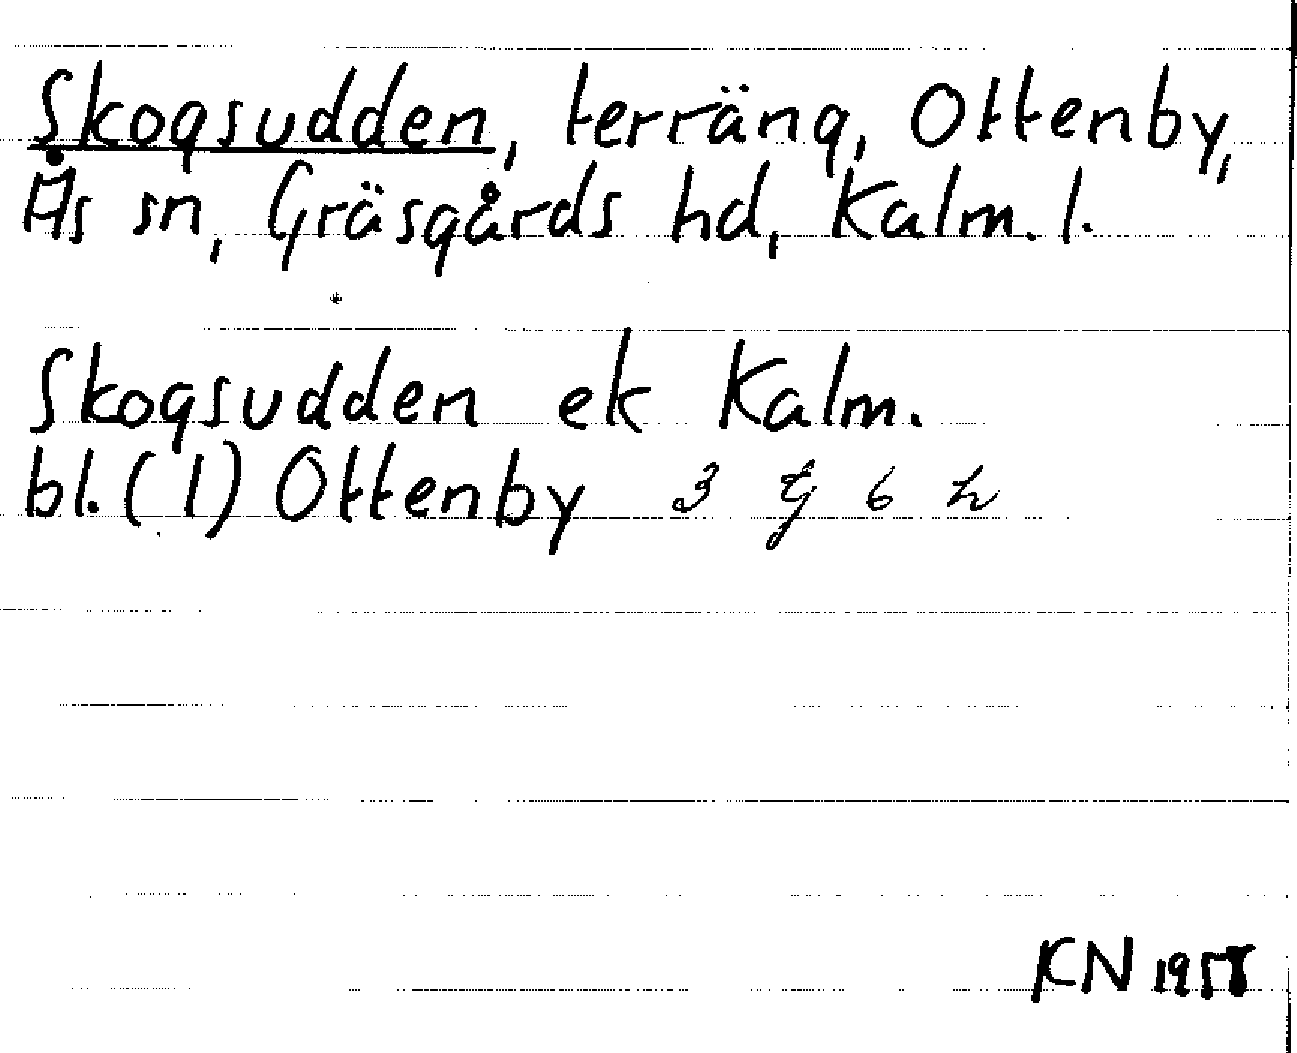 Skogsudden, terräng, Ottenby,
Ås sn, Gräsgårds hd, Kalm. l.
Skogsudden ek Kalm.
bl. (1) Ottenby 3 G 6 h
KN